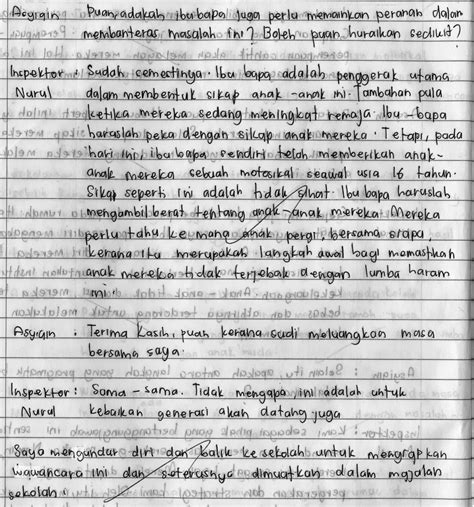 Asyiqin : Puan, adakah ibu bapa juga perlu memainkan peranan dalam
membanteras masalah ini? Boleh puan huraikan sedikit?
Inspektor : Sudah semestinya. Ibu bapa adalah penggerak utama
Nurul dalam membentuk sikap anak-anak ini. Tambahan pula
ketika mereka sedang meningkat remaja. Ibu-bapa
haruslah peka dengan sikap anak mereka. Tetapi, pada
hari ini, ibu bapa sendiri telah memberikan anak-
anak mereka sebuah motosikal seawal usia 16 tahun.
Sikap seperti ini adalah tidak sihat. Ibu bapa haruslah
mengambil berat tentang anak-anak mereka. Mereka
perlu tahu ke mana anak pergi, bersama siapa
kerana itu merupakan langkah awal bagi memastikan
anak mereka tidak terjebak dengan lumba haram
ini.
Asyiqin : Terima kasih, puan kerana sudi meluangkan masa
bersama saya.
Inspektor : Sama-sama. Tidak mengapa, ini adalah untuk
Nurul kebaikan generasi akan datang juga
Saya mengundur diri dan balik ke sekolah untuk mengrapkan
wawancara ini dan seterusnya dimuatkan dalam majalah
sekolah.